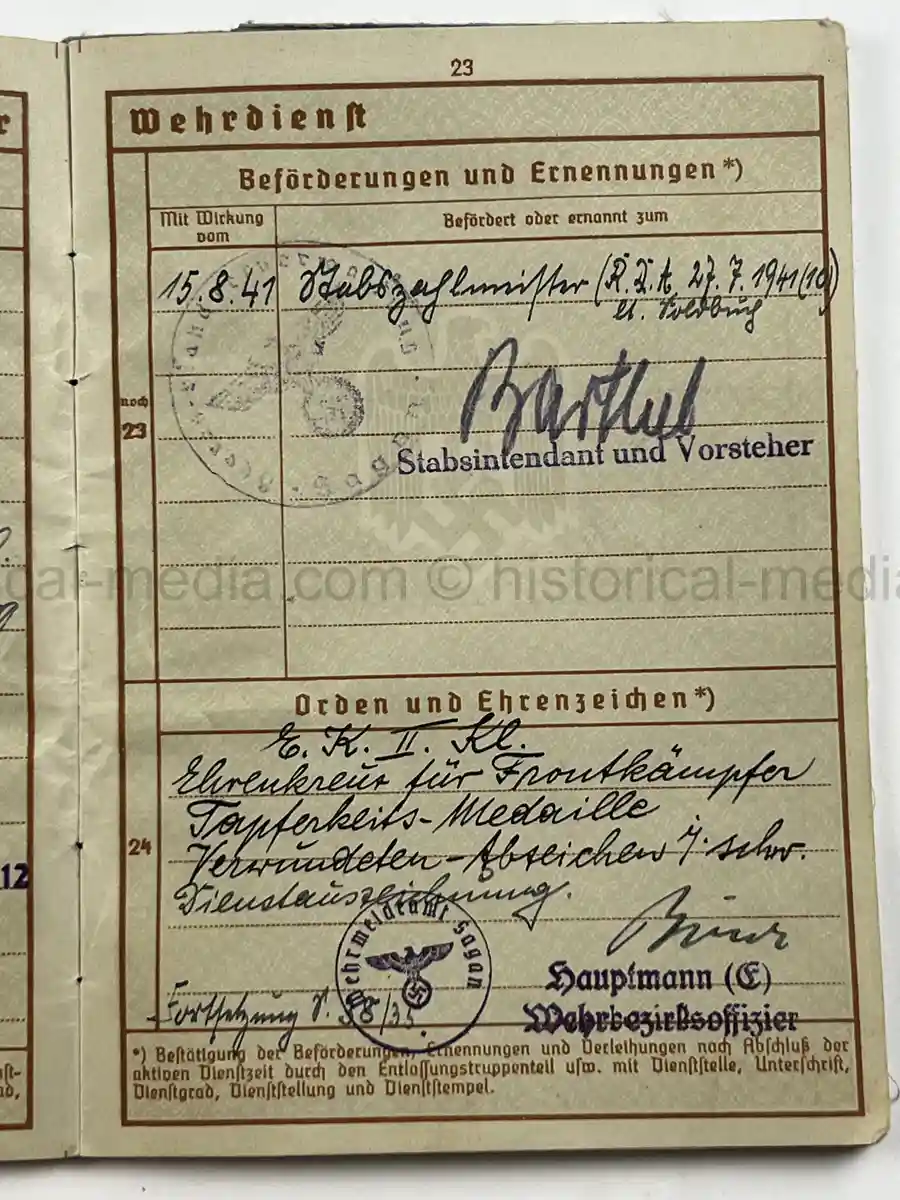 23
Wehrdienst
Beförderungen und Ernennungen *)
Mit Wirkung vom
Befördert oder ernannt zum
15.8.41 Stabszahlmeister (R. d. A. 27.7.1941 (10)
lt. Soldbuch
noch
23
Barthel
Stabsintendant und Vorsteher
Sagan
cal-media.com © historical-media
Orden und Ehrenzeichen *)
24
E. K. II. Kl.
Ehrenkreuz für Frontkämpfer
Tapferkeits-Medaille
Verwundeten-Abzeichen i. schw.
Dienstauszeichnung.
Wehrmeldeamt Sagan
Hauptmann (E)
Wehrbezirksoffizier
Fortsetzung S. 38/35
*) Bestätigung der Beförderungen, Ernennungen und Verleihungen nach Abschluß der
aktiven Dienstzeit durch den Entlassungstruppenteil usw. mit Dienststelle, Unterschrift,
Dienstgrad, Dienststellung und Dienststempel.
12